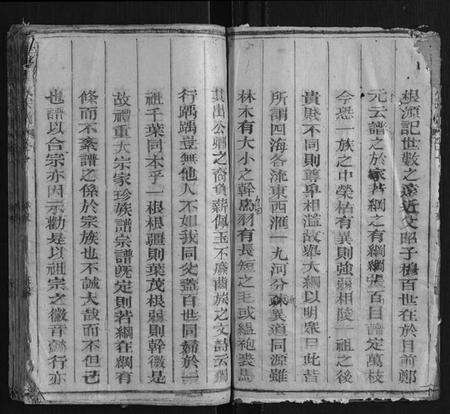 根源記世數之遠近父昭子穆百世在於目前鄭
元云譜之於家若網之有綱綱張百目譜定萬枝
今恐一族之中榮枯有異則強弱相陵一祖之後
貴賤不同則尊卑相濫故舉大綱以明衆目此昔
所謂四海各流東西滙一九河分派異道同源雖
林木有大小之幹鳥羽有長短之毛或縕袍裘馬
其出公卿之裔負薪佩玉不廢齒族之文詩云獨
行踽踽豈無他人不如我同父蓋百世同婦於一
祖千葉同本乎一根根疆則葉茂根弱則幹微是
故禮重大宗家珍族譜宗譜既定則若綱在網有
條而不紊譜之係於宗族也不誠大哉而不但已
也譜以合宗亦因示勸是以祖宗之徽音懿行亦